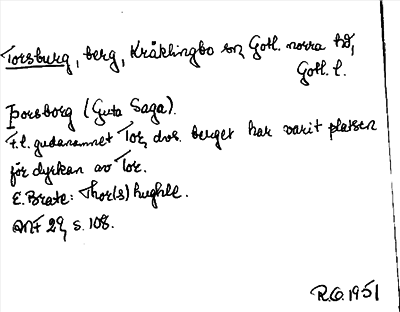 Torsburg, berg, Kräklingbo sn, Gotl. norra hd,
Gotl. l.
Þorsborg (Guta Saga).
T. l. gudanamnet Tor, dvs. berget har varit platsen
för dyrkan av Tor.
E. Brate: Thor(s)hughle.
ANF 29, s. 108.
R.O. 1951